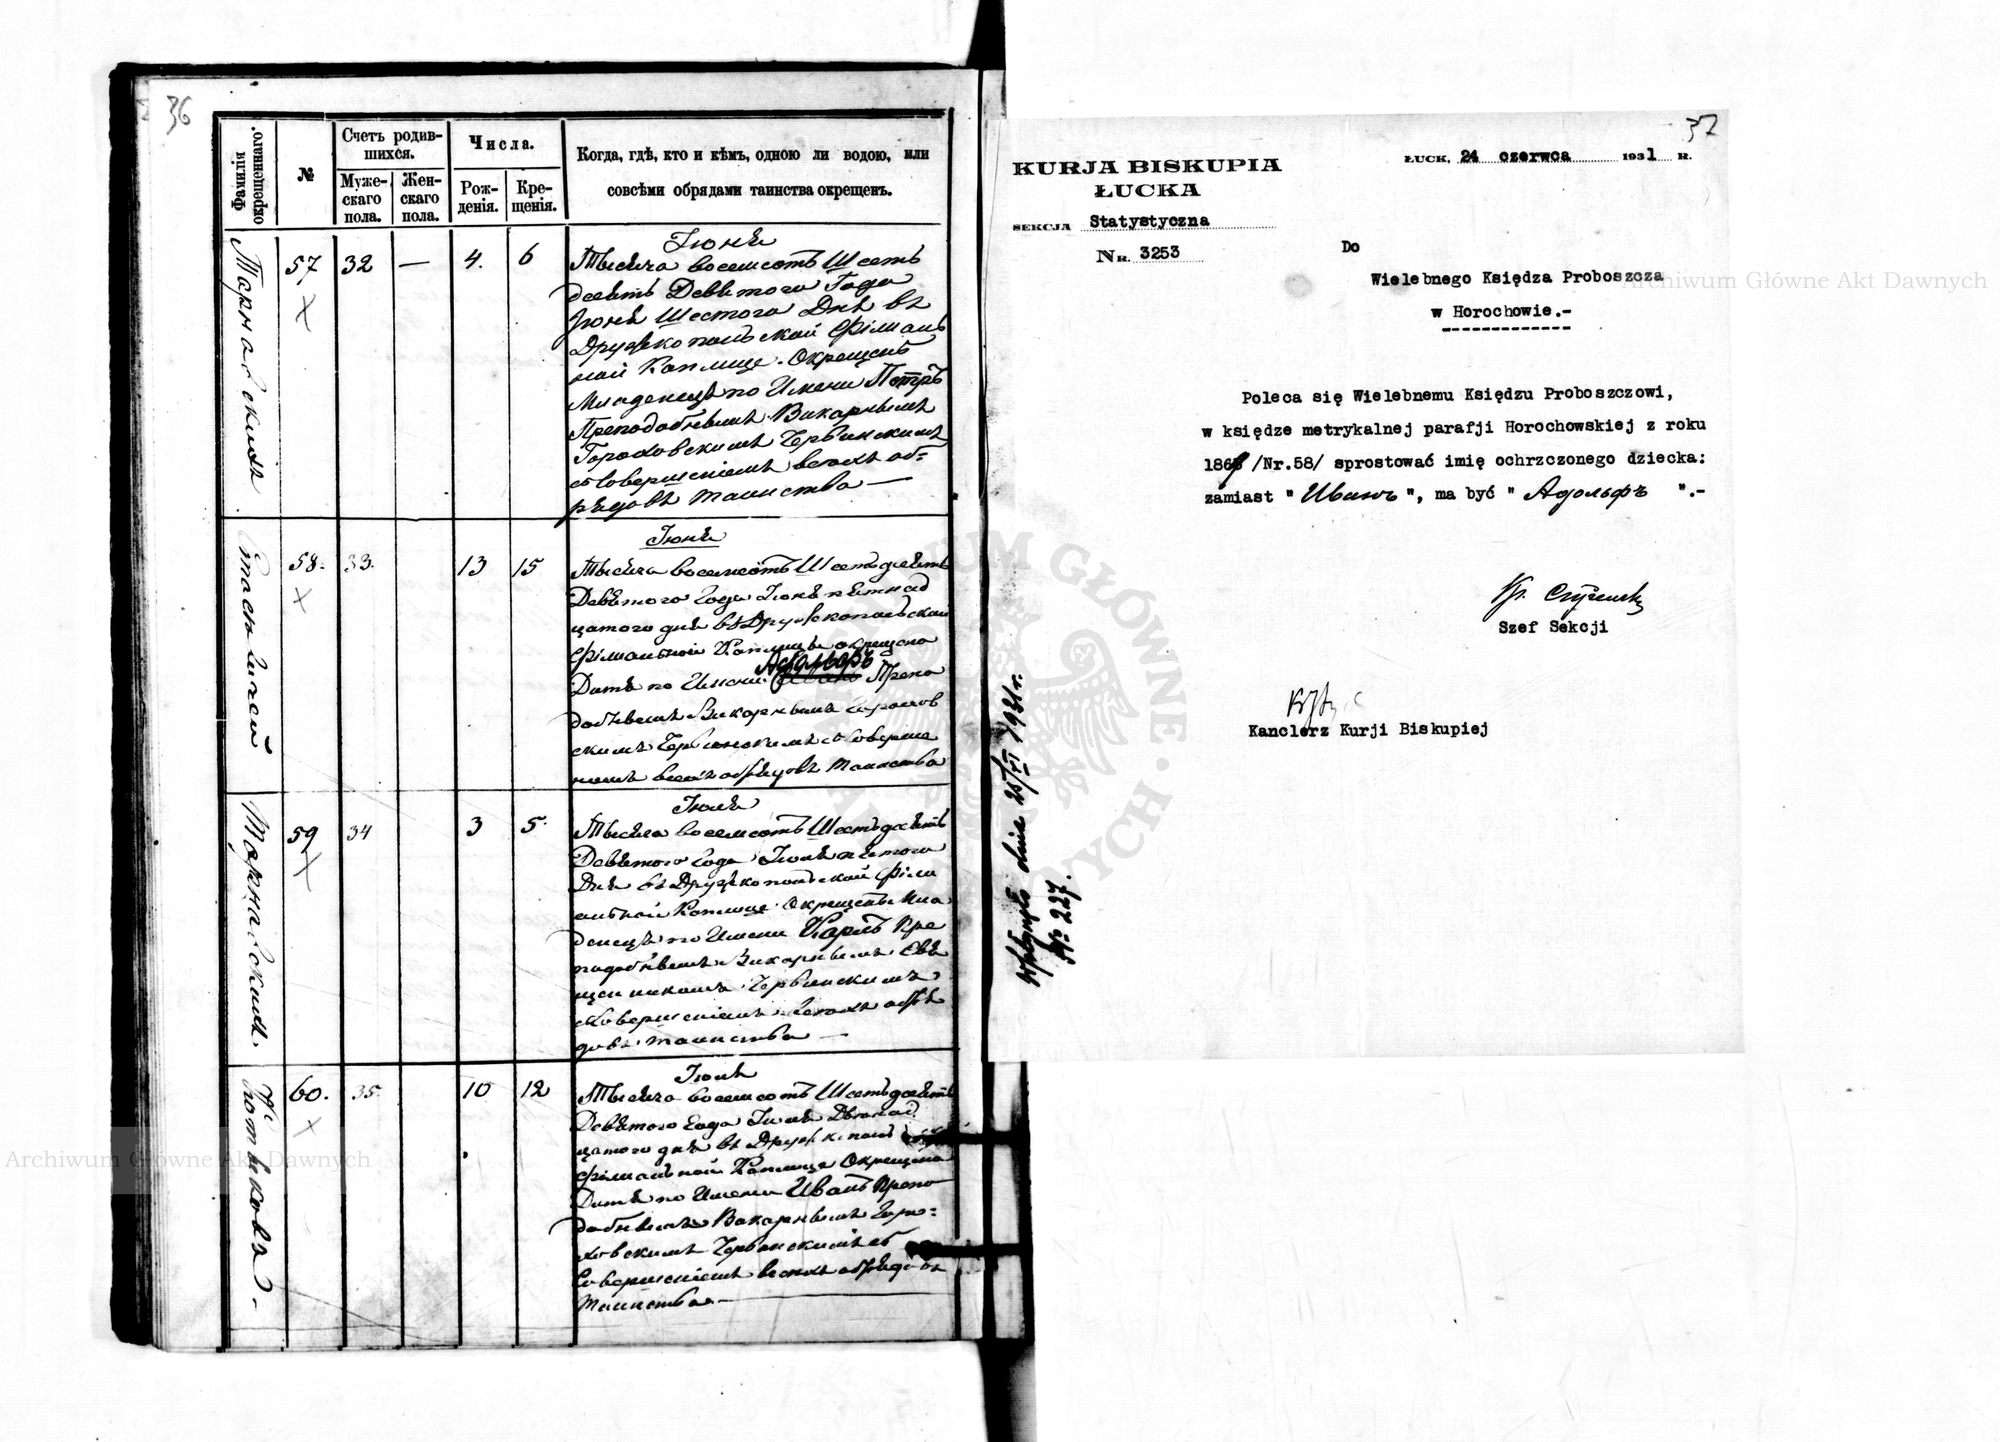 36
Фамилія окрещеннаго.
№
Счетъ родившихся.
Мужескаго пола.
Женскаго пола.
Числа.
Рожденія.
Крещенія.
Когда, гдѣ, кто и кѣмъ, одною ли водою, или
совсѣми обрядами таинства окрещенъ.
57
32
—
4.
6
Іюня
Тысяча восемсотъ Шестъ
десятъ Девятого Года
Іюня Шестого Дня въ
Дружкопольской Філиаль
ной Каплице Окрещенъ
Младенецъ по Имени Петръ
Преподобнымъ Викарнымъ
Гороховскимъ Червинскимъ
съ Совершеніемъ всехъ об=
рядовъ таинства —
58.
33.
13
15
Іюня
Тысяча восемсотъ Шестъдесятъ
Девятого Года Іюня пятнад
цатого дня въ Дружкопольской
Філиальной Каплице окрещено
Адольфъ
Дитя по Имени Иванъ Препо
добнымъ Викарнымъ Горохов
скимъ Червинскимъ съ Соверше
ніемъ всехъ обрядовъ Таинства
59
34
3
5.
Іюля
Тысяча восемсотъ Шестъдесятъ
Девятого Года Іюля пятого
Дня въ Дружкопольской Філи
альной Каплице Окрещенъ Мла
денецъ по Имени Карлъ Пре
подобнымъ Викарнымъ Свя
щенникомъ Червинскимъ
съ Совершеніемъ всехъ обря
довъ таинства —
60.
35.
10
12
Іюля
Тысяча восемсотъ Шестъдесятъ
Девятого Года Іюля Двенад
цатого дня въ
Філиальной Каплице Окрещено
Дитя по Имени Иванъ Препо
добнымъ Викарнымъ Горо=
ховскимъ Червинскимъ съ
Совершеніемъ всехъ обрядовъ
Таинства —
37
KURJA BISKUPIA
ŁUCKA
SEKCJA Statystyczna
Nr. 3253
ŁUCK, 24 czerwca 1931 R.
Do
Wielebnego Księdza Proboszcza
w Horochowie.-
Poleca się Wielebnemu Księdzu Proboszczowi,
w księdze metrykalnej parafji Horochowskiej z roku
1869 /Nr.58/ sprostować imię ochrzczonego dziecka:
zamiast " Иванъ ", ma być " Адольфъ ".-
Szef Sekcji
Kanclerz Kurji Biskupiej
Wpłynęło dnia 25/VI 1931 r.
№ 227.
Archiwum Główne Akt Dawnych
Archiwum Główne Akt Dawnych